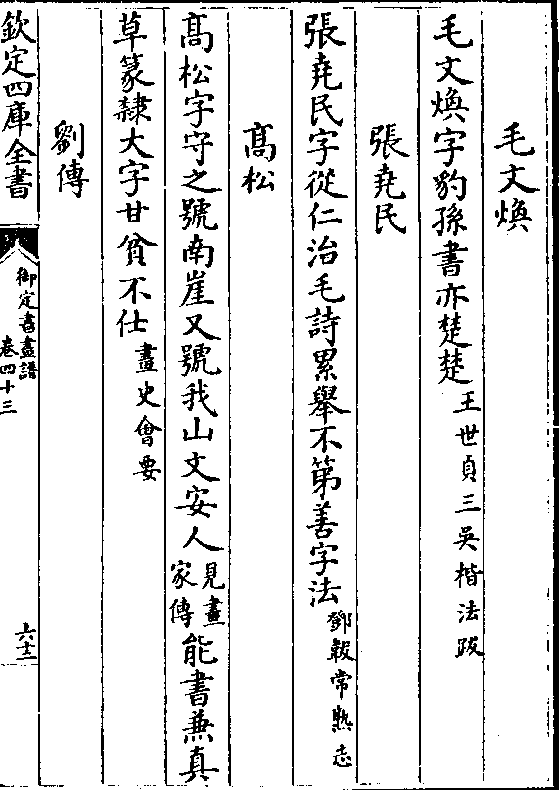 毛文煥
毛文煥字豹孫書亦楚楚王世貞三吳楷法跋
張堯民
張堯民字從仁治毛詩累舉不第善字法鄧韍常熟志
髙松
髙松字守之號南崖又號我山文安人見畫家傳能書兼真
草篆隸大字甘貧不仕畫史㑹要
劉傳
欽定四庫全書
御定書畫譜
卷四十三
六十二